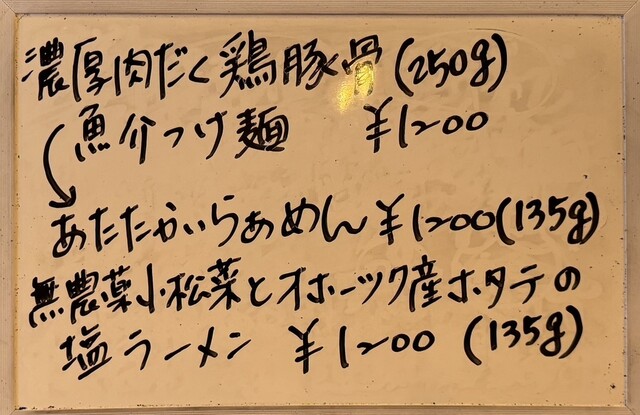 濃厚肉だく鶏豚骨(250g)
魚介つけ麺 ¥1200
あたたかいらぁめん¥1200(135g)
無農薬小松菜とオホーツク産ホタテの
塩ラーメン ¥1200 (135g)